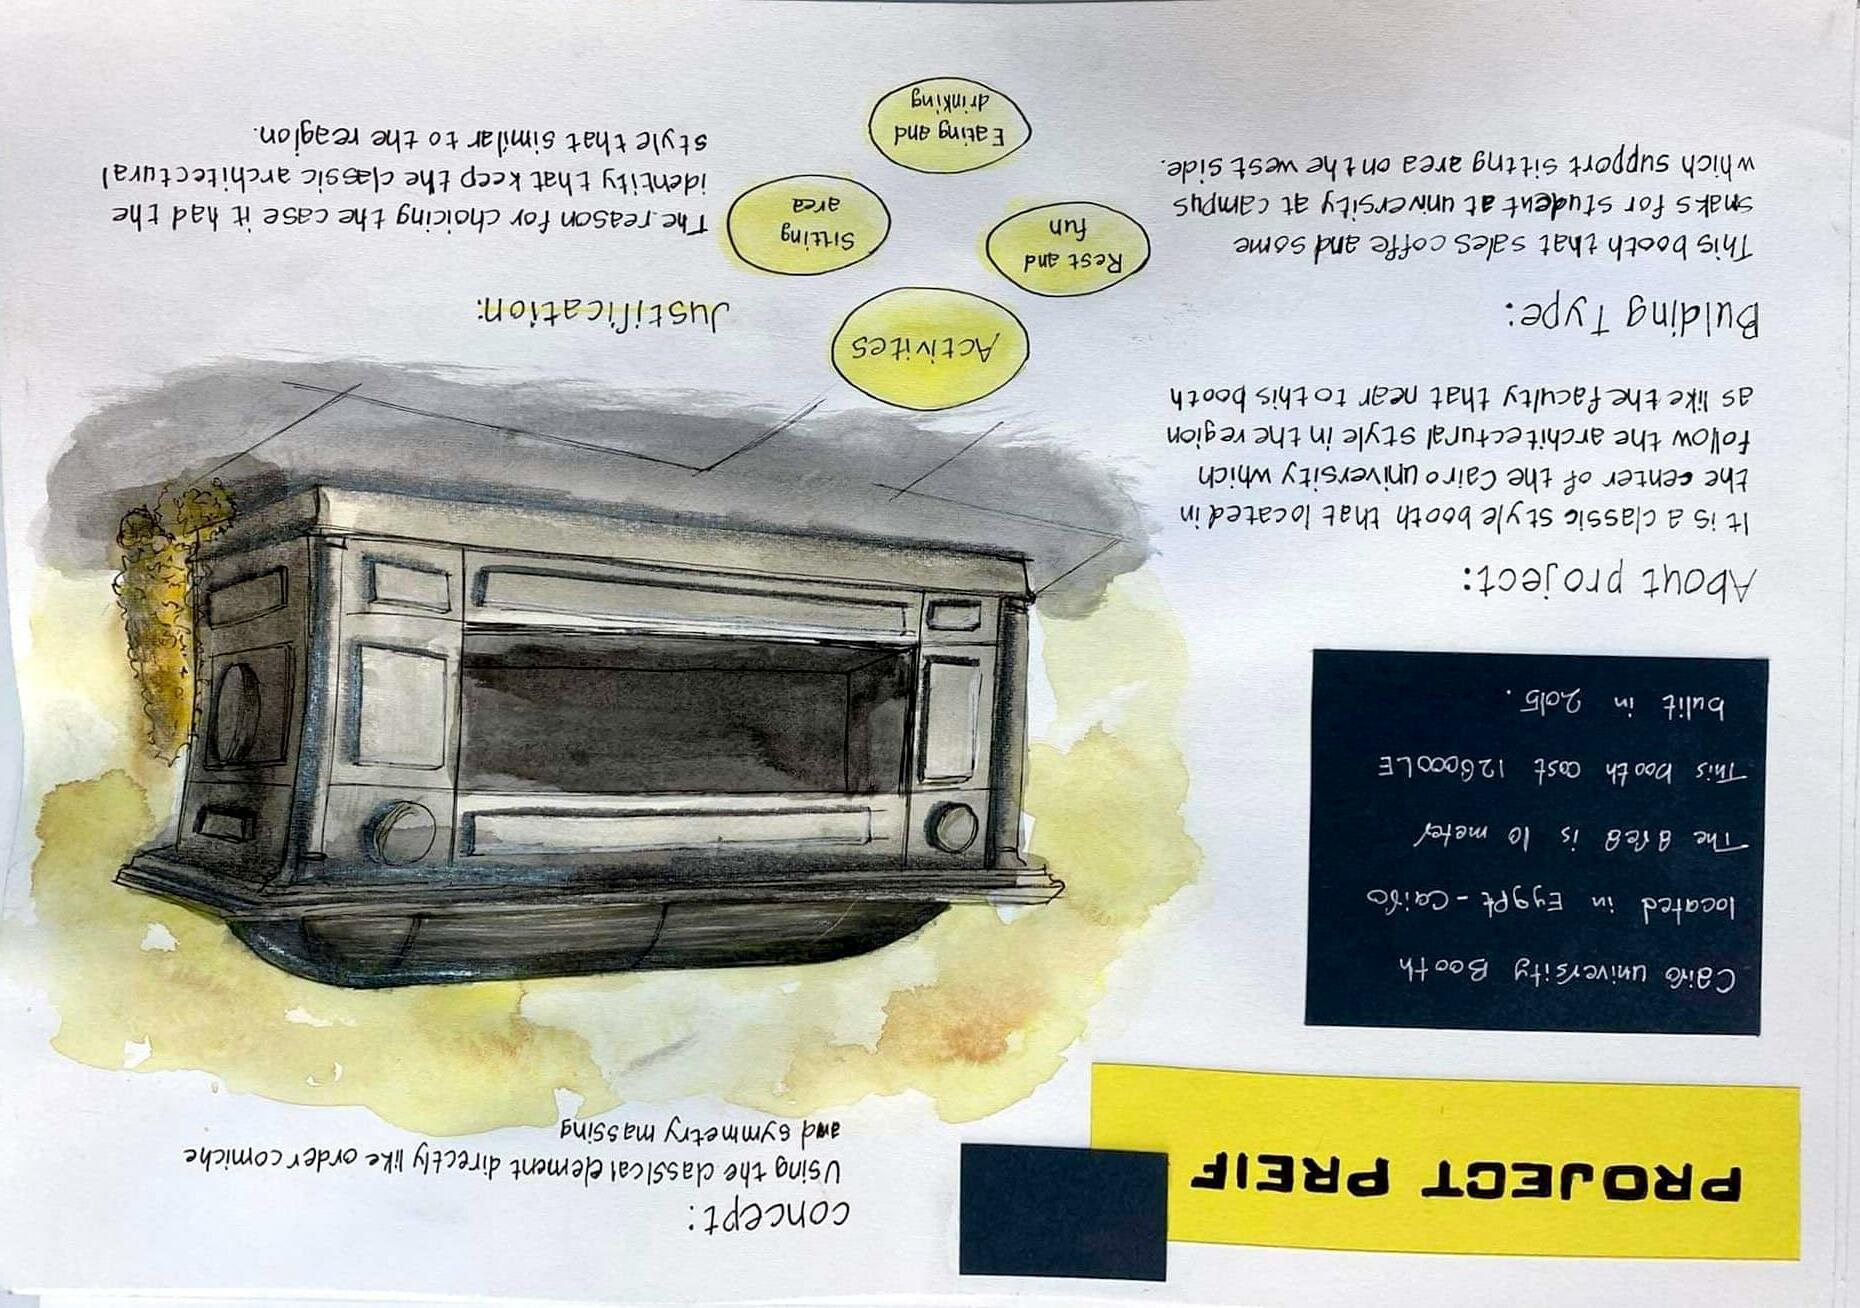 PROJECT PREIF
Cairo university Booth
located in Eygpt - Cairo
The area is 10 meter
This booth cost 126000 LE
bulit in 2015.
About project:
It is a classic style booth that located in
the center of the Cairo university which
follow the architectural style in the region
as like the faculty that near to this booth
Bulding Type:
This booth that sales coffe and some
snaks for student at university at campus
which support sitting area on the west side.
concept:
Using the classical element directly like order corniche
and symmetry massing
Activites
Rest and
fun
Sitting
area
Eating and
drinking
Justification:
The reason for choicing the case it had the
identity that keep the classic architectural
style that similar to the reagion.